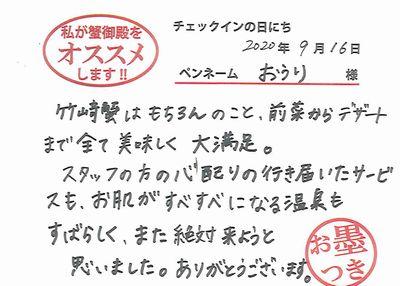 私が蟹御殿を
オススメ
します!!
チェックインの日にち
2020年9月16日
ペンネーム おうり 様
竹崎蟹はもちろんのこと、前菜からデザート
まで全て美味しく大満足。
スタッフの方の心配りの行き届いたサービ
スも、お肌がすべすべになる温泉も
すばらしく、また絶対来ようと
思いました。ありがとうございます。
お墨
つき